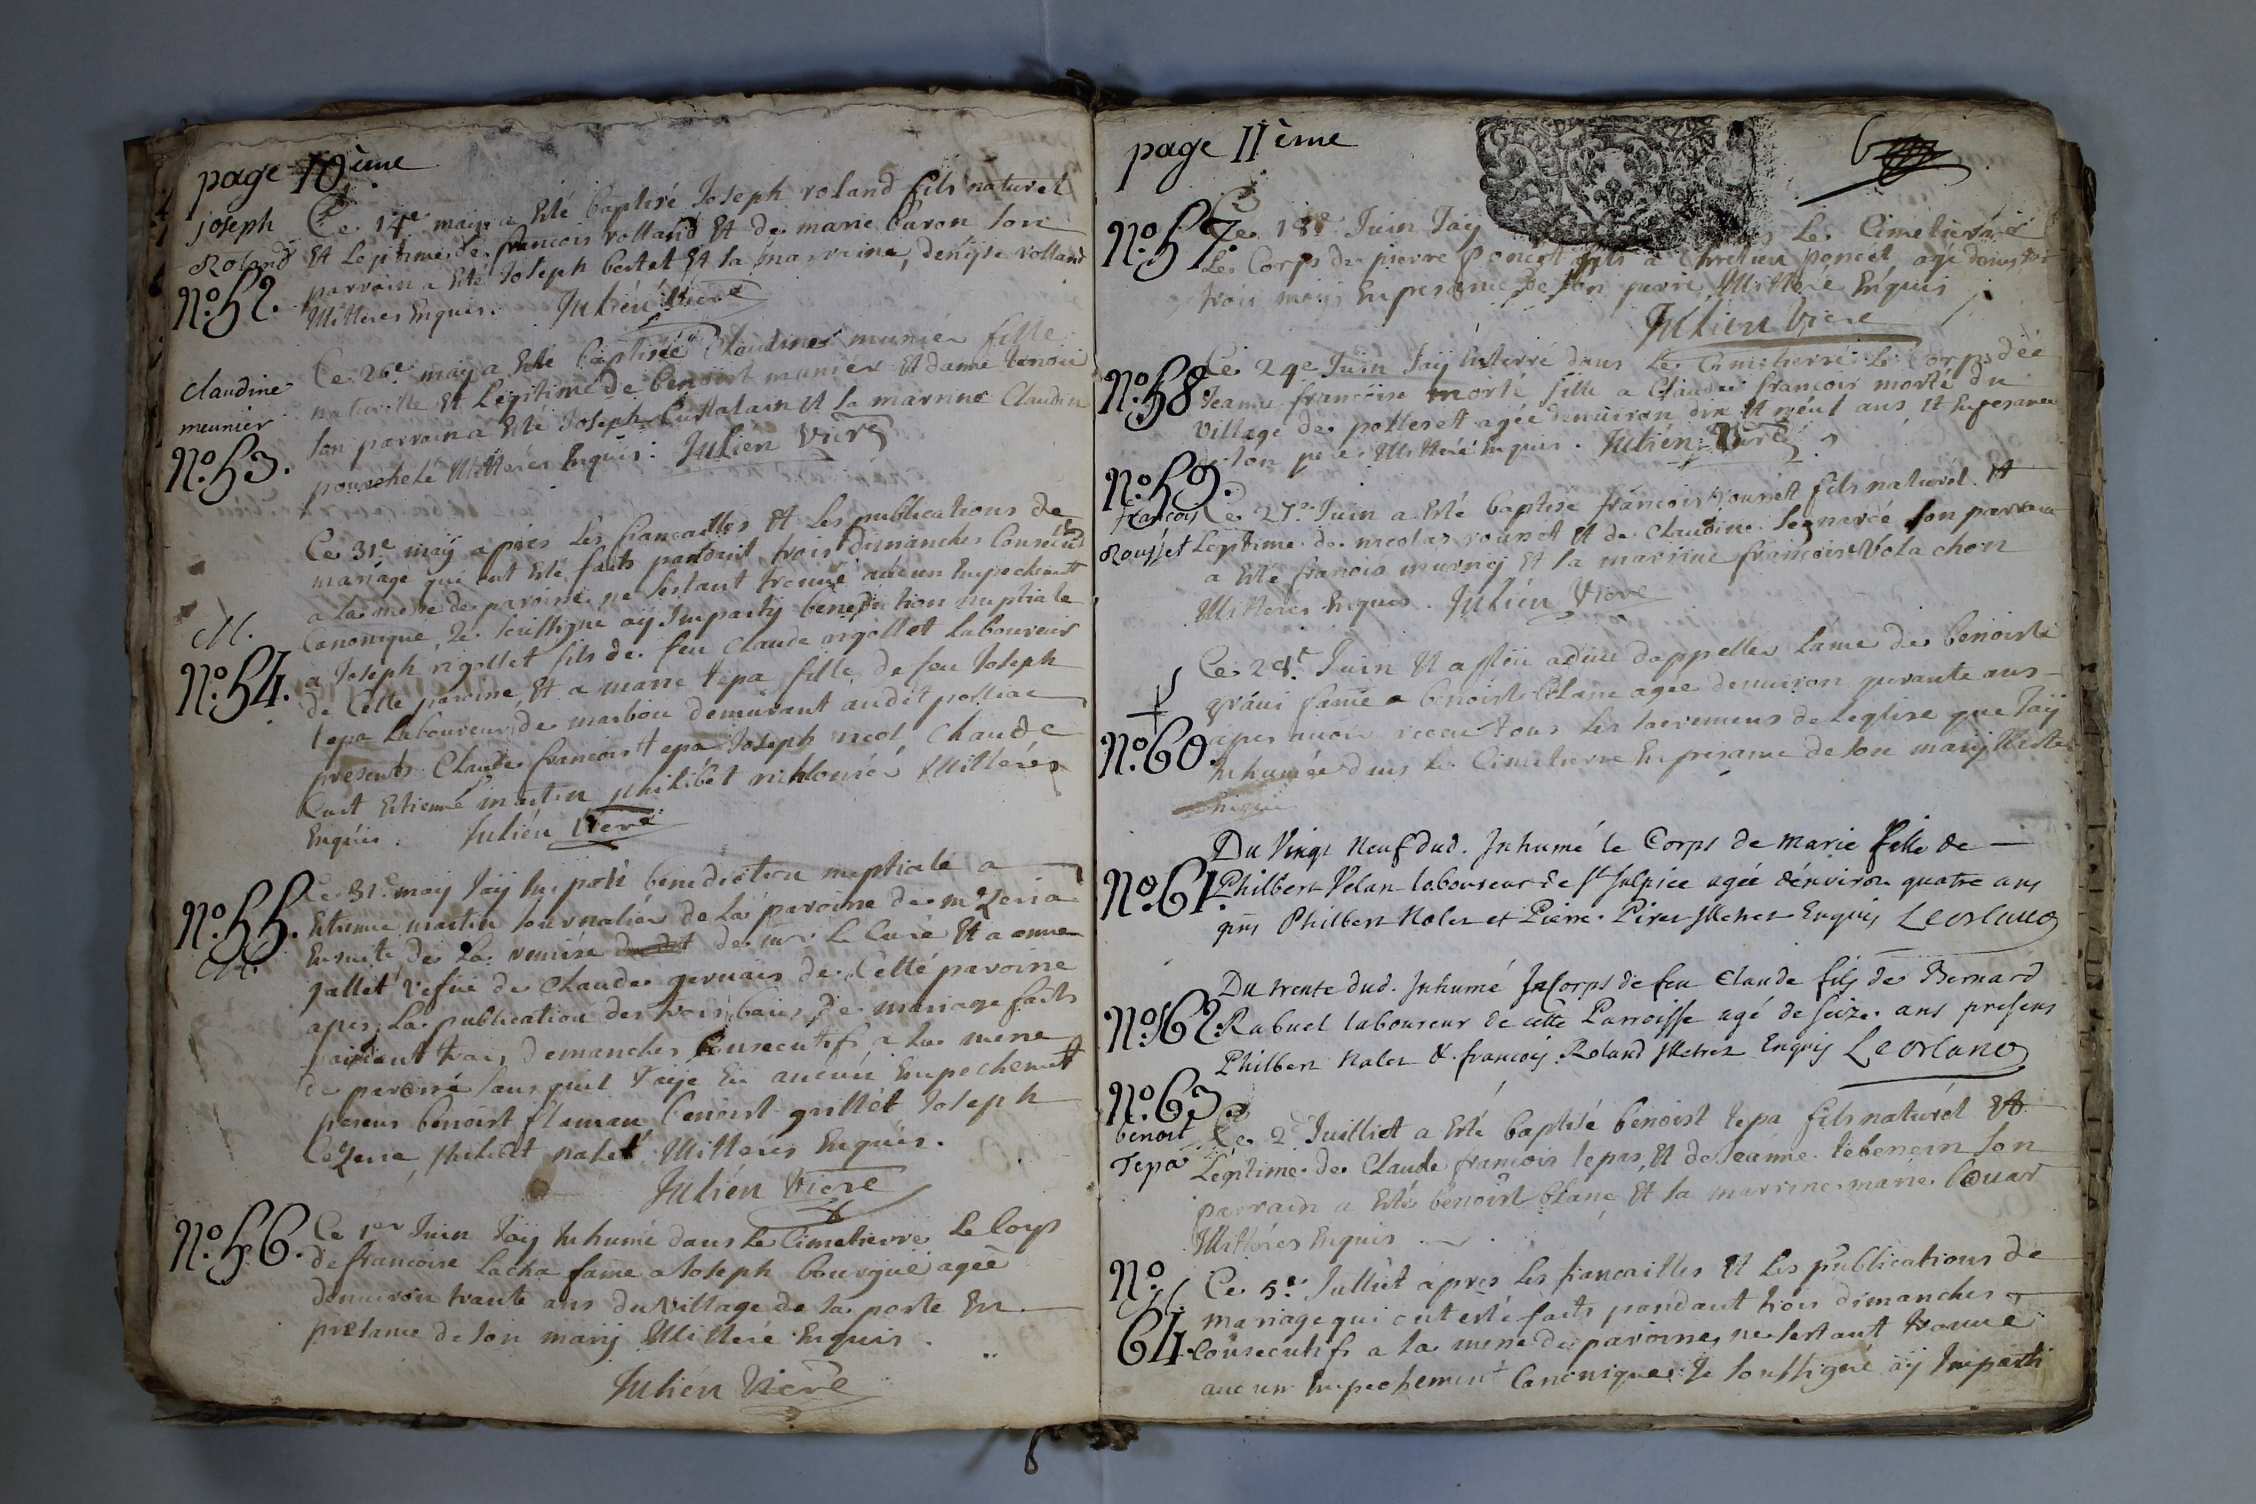 page 10ème
joseph
Roland
No. 52.
Ce 14e may a Esté baptisé Joseph roland fils naturel
Et Legitime de francois rolland Et de marie baron son
parrain a Esté Joseph bertet Et sa marraine, denise rolland
Illitterés Enquis. Julien Viere
claudine
meunier
No. 53.
Ce 26e may a Esté baptisée Claudine munier fille
naturelle Et Legitime de benoist munier Et danne
son parrain a Esté Joseph Et sa marrine Claudine
Illitterés Enquis. Julien Viere
M.
No. 54.
Ce 31e may apres Les fiancailles Et Les publications de
mariage qui ont Esté faits pandant trois dimanches Consecutifs
a la messe de paroisse ne sestant trouvé aucun Empechement
Canonique, Je soussigne ay Imparty benediction nuptiale
a Joseph rigollet fils de feu Claude rigollet Laboureur
de Cette paroisse, Et a marie tepa fille de feu Joseph
tepa Laboureur de marbou demeurant audit polliac
presents Claude francois tepa Joseph nicol Claude
Cuet Estienne martin philibet Illitterés
Enquis. Julien Viere
No. 55.
M.
Ce 31e may Jay Imposé benediction nuptiale a
Etienne martin Journalier de La paroisse de mezeria
Ensuite de La remise de mr. Le Curé Et a anne
pallet vefue de Claude gervais de Cette paroisse
apres La publication des trois bans de mariage faits
pandant trois demanches Consecutifs a La messe
de paroisse sans quil y aije Eu aucun Empechement
presens benoist flaman benoist grillet Joseph
Cezerie philibert nalet Illitterés Enquis.
Julien Viere
No. 56.
Ce 1er Juin Jay Inhumé dans Le Cimetierre Le Corps
de francoise Lacha fame a Joseph bourgui agée
denuiron trante ans du village de La poste En
presance de son mary Illitteré Enquis.
Julien Viere
page 11ème
No. 57.
Ce 18e Juin Jay Le Cimetierre
Les Corps de pierre poncet fils a Chretien poncet agé
trois mois En presence de son pere Illitteré Enquis
Julien Viere
No. 58
Ce 24e Juin Jay Enterré dans Le Cimetierre Le Corps de
Jeanne francoise morté fille a Claude francois morté du
village de polleset agée denuiron dix et neuf ans Et En presance
de son pere Illitteré Enquis. Julien Viere
No. 59.
francois
Rousset
Ce 27e Juin a Esté baptisé francois rouset fils naturel Et
Legitime de nicolas rouset Et de Claudine son parrain
a Esté francois Et sa marrine francoise Volachon
Illitteres Enquis. Julien Viere
No. 60.
Ce 28e Juin Il a pleu a dieu dappeller Lame de benoiste
fame a benoist blanc agée denuiron quarante ans
apres auoir receu tous Les sacremens de Leglise que Jay
Inhumée dans Le Cimetierre En presance de son mary Illitteré
Enquis
No. 61.
Du Vingt Neuf dud. Inhumé le Corps de Marie fille de
Philbert Velan laboureur de St Sulpice agée denviron quatre ans
pns Philbert Nalet et Pierre Illetrez Enquis Leorlano
No. 62.
Du trente dud. Inhumé Le Corps de feu Claude fils de Bernard
Rabuel laboureur de cette Parroisse agé de Seize ans presens
Philbert Nalet & francois Roland Illetrez Enquis Leorlano
No. 63
benoit
Tepa
Ce 2e Juilliet a Esté baptisé benoist tepa fils naturel Et
Légitime de Claude francois tepas, Et de Jeanne son
parrain a Esté benoist blanc Et sa marrine marie Couar
Illitterés Enquis
No.
M.
64.
Ce 5e Julliet apres Les fiancailles Et Les publications de
mariage qui ont esté faits pandant trois dimanches
Consecutifs a La messe de paroisse, ne sestant trouué
aucun Empechement Canonique Je soussigné ay Imparti